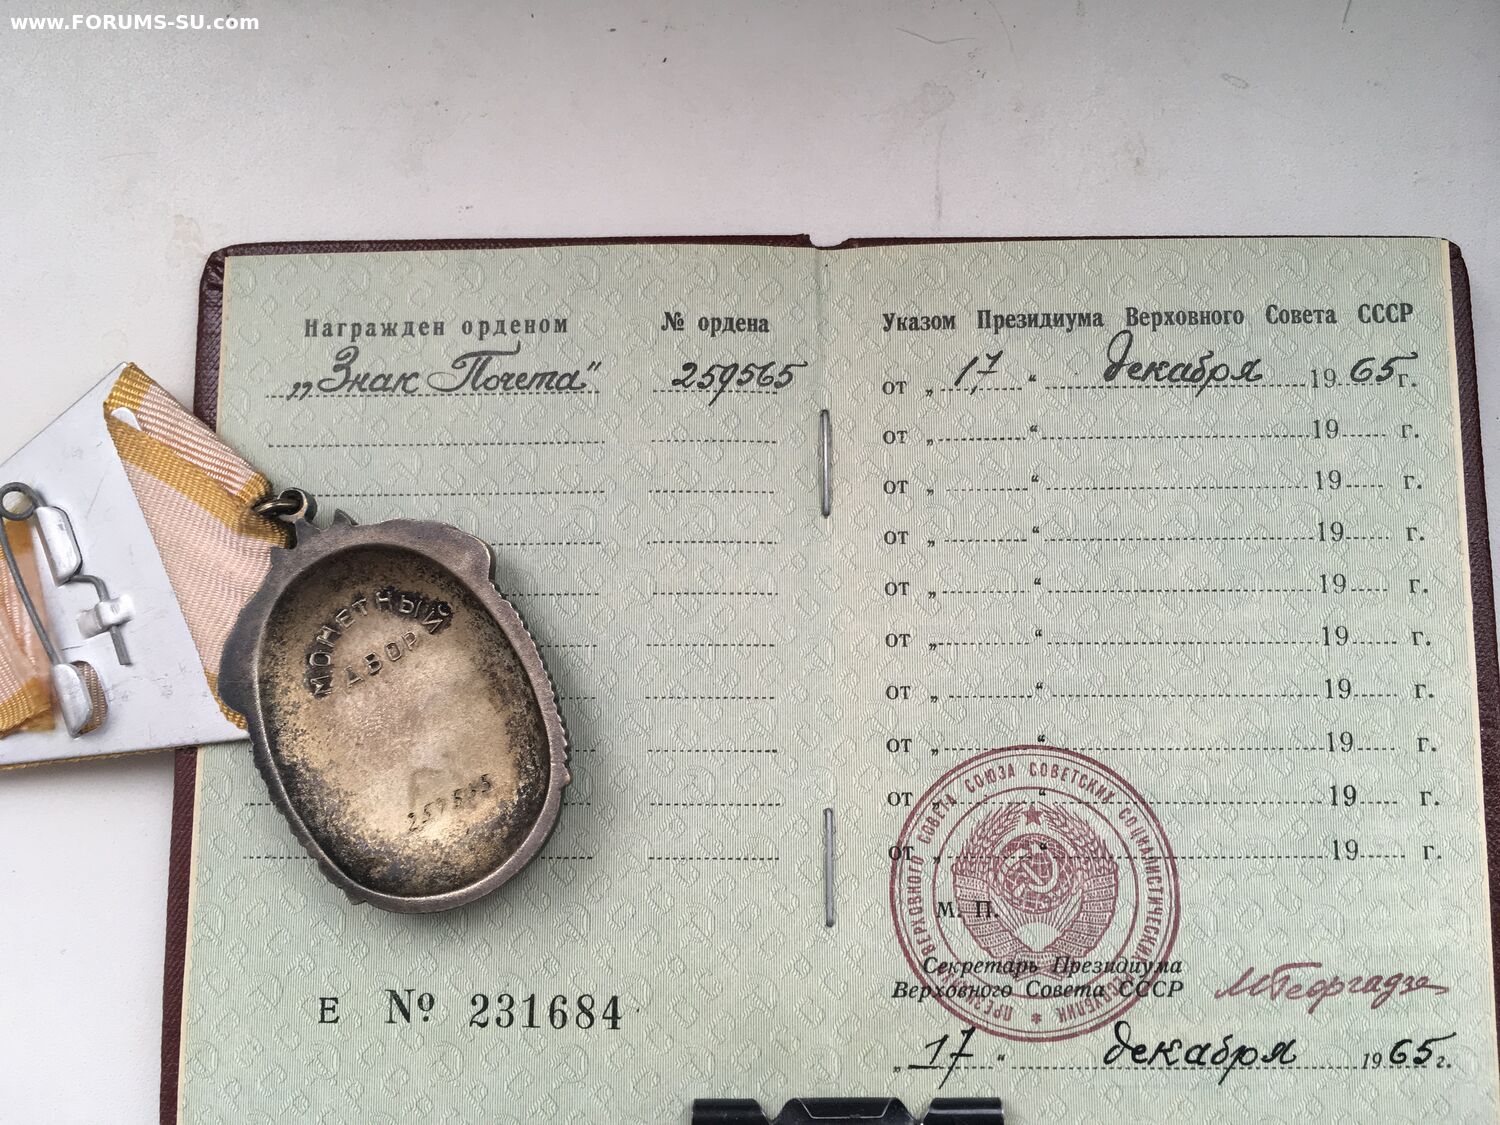 www.FORUMS-SU.com
Награжден орденом № ордена
„Знак Почета" 259565
Указом Президиума Верховного Совета СССР
от „17" декабря 1965 г.
от „ " 19 г.
от „ " 19 г.
от „ " 19 г.
от „ " 19 г.
от „ " 19 г.
от „ " 19 г.
от „ " 19 г.
от „ " 19 г.
от „ " 19 г.
МОНЕТНЫЙ
ДВОР
259565
Е № 231684
ПРЕЗИДИУМ ВЕРХОВНОГО СОВЕТА СОЮЗА СОВЕТСКИХ СОЦИАЛИСТИЧЕСКИХ РЕСПУБЛИК
М. П.
Секретарь Президиума
Верховного Совета СССР МГеоргадзе
„17" декабря 1965 г.